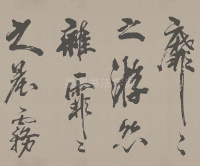 靡〻
之游絲
雜霏〻
之晨霧